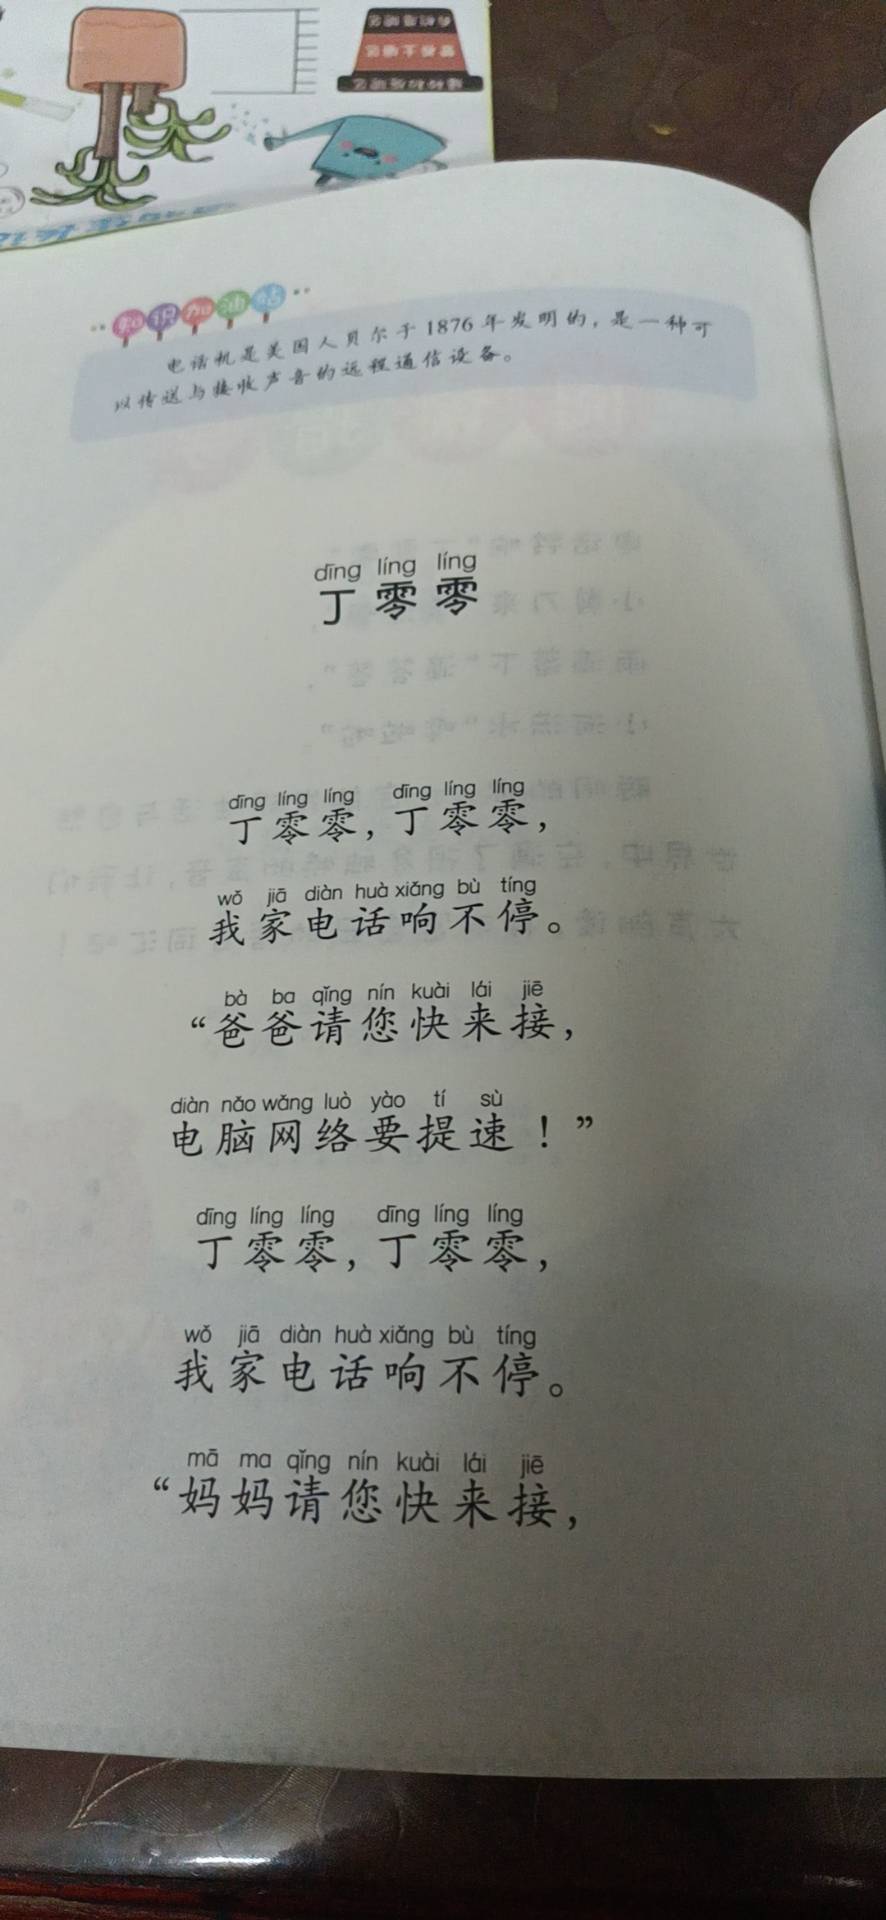 知识加油站
电话机是美国人贝尔于1876年发明的，是一种可
以传送与接收声音的远程通信设备。
dīng líng líng
丁零零
dīng líng líng dīng líng líng
丁零零，丁零零，
wǒ jiā diàn huà xiǎng bù tíng
我家电话响不停。
bà ba qǐng nín kuài lái jiē
“爸爸请您快来接，
diàn nǎo wǎng luò yào tí sù
电脑网络要提速！”
dīng líng líng dīng líng líng
丁零零，丁零零，
wǒ jiā diàn huà xiǎng bù tíng
我家电话响不停。
mā ma qǐng nín kuài lái jiē
“妈妈请您快来接，